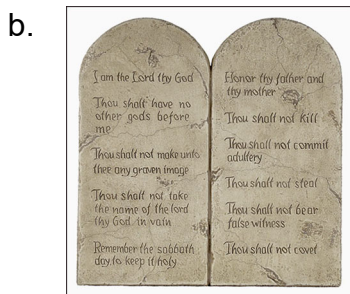 b.
I am the Lord thy God
Thou shalt have no
other gods before
me
Thou shalt not make unto
thee any graven image
Thou shalt not take
the name of the lord
thy God in vain
Remember the sabbath
day to keep it holy
Honor thy father and
thy mother
Thou shalt not kill
Thou shalt not commit
adultery
Thou shalt not steal
Thou shalt not bear
false witness
Thou shalt not covet